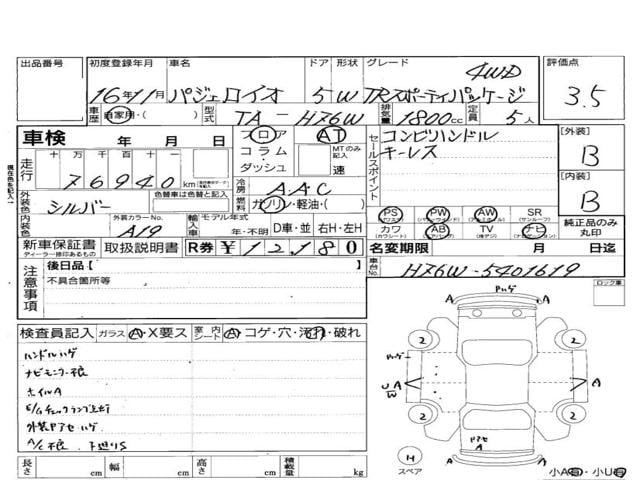 出品番号 初度登録年月 車名 ドア 形状 グレード 評価点
4WD
16年11月 パジェロイオ 5 W TRスポーティパッケージ 3.5
車歴 自家用・( ) 型式 TA-H76W 排気量 1800cc 定員 5人
車検 年 月 日
フロア・コラム・ダッシュ
AT
MTのみ記入
速
セールスポイント
コンビハンドル
キーレス
[外装]
B
[内装]
B
走行 十万千百十一
76940km
冷房 AAC
外装色 シルバー 色替車は色替と記入
燃料 ガソリン・軽油・( )
PS PW AW SR
(パワステ) (パワーウィンド) (サンルーフ)
カワ AB TV ナビ
(カワシート) (エアバッグ)
純正品のみ丸印
内装色 外装カラーNo. A19 輸入車 モデル年式 年・不明 D車・並 右H・左H
新車保証書 取扱説明書 R券 ¥12,180
ディーラー捺印あるもの
名変期限 月 日迄
車台No. H76W-5401619
注意事項
後日品【 】
不具合箇所等
ロック車
検査員記入 ガラス A・X要ス 室内シート A・コゲ・穴・汚れ・破れ
ハンドルハゲ
ナビモニター不良
ホイルA
E/Gチェックランプ点灯
外装PアセハゲA/C不良 下廻りS
Pハゲ
2 2
A
UA
W
A
2 2
Pアセ
A
H
スペア
長さ cm 幅 cm 高さ cm 積載量 kg
小A有・小U有